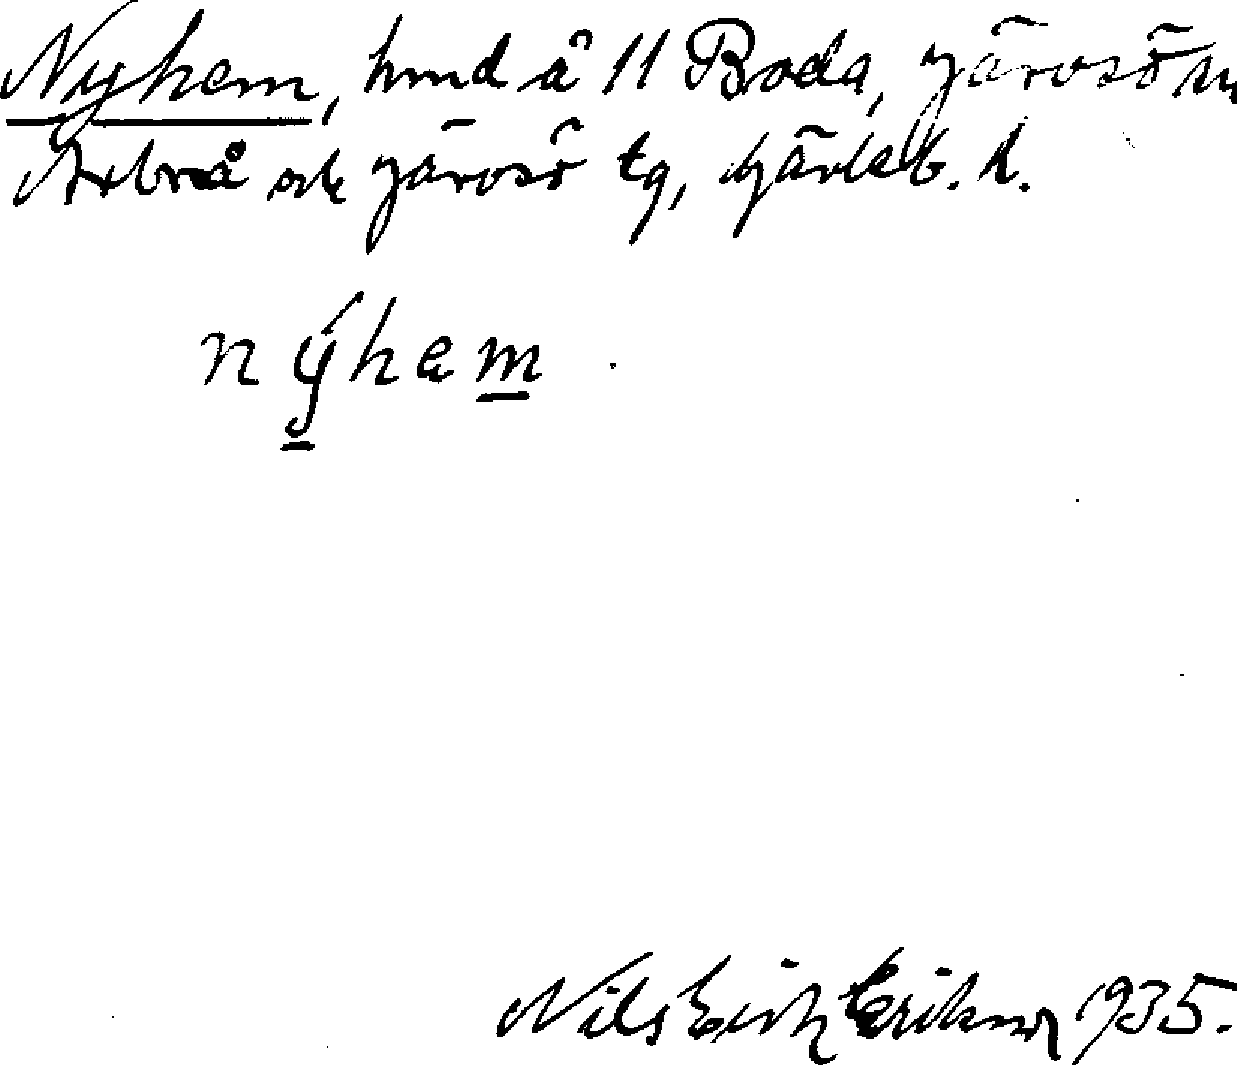 Nyhem, hmd å 11 Boda, Järvsö sn
Arbrå och Järvsö tg, Gävleb. l.
nýhem
Nils Erik Eriksson 1935.